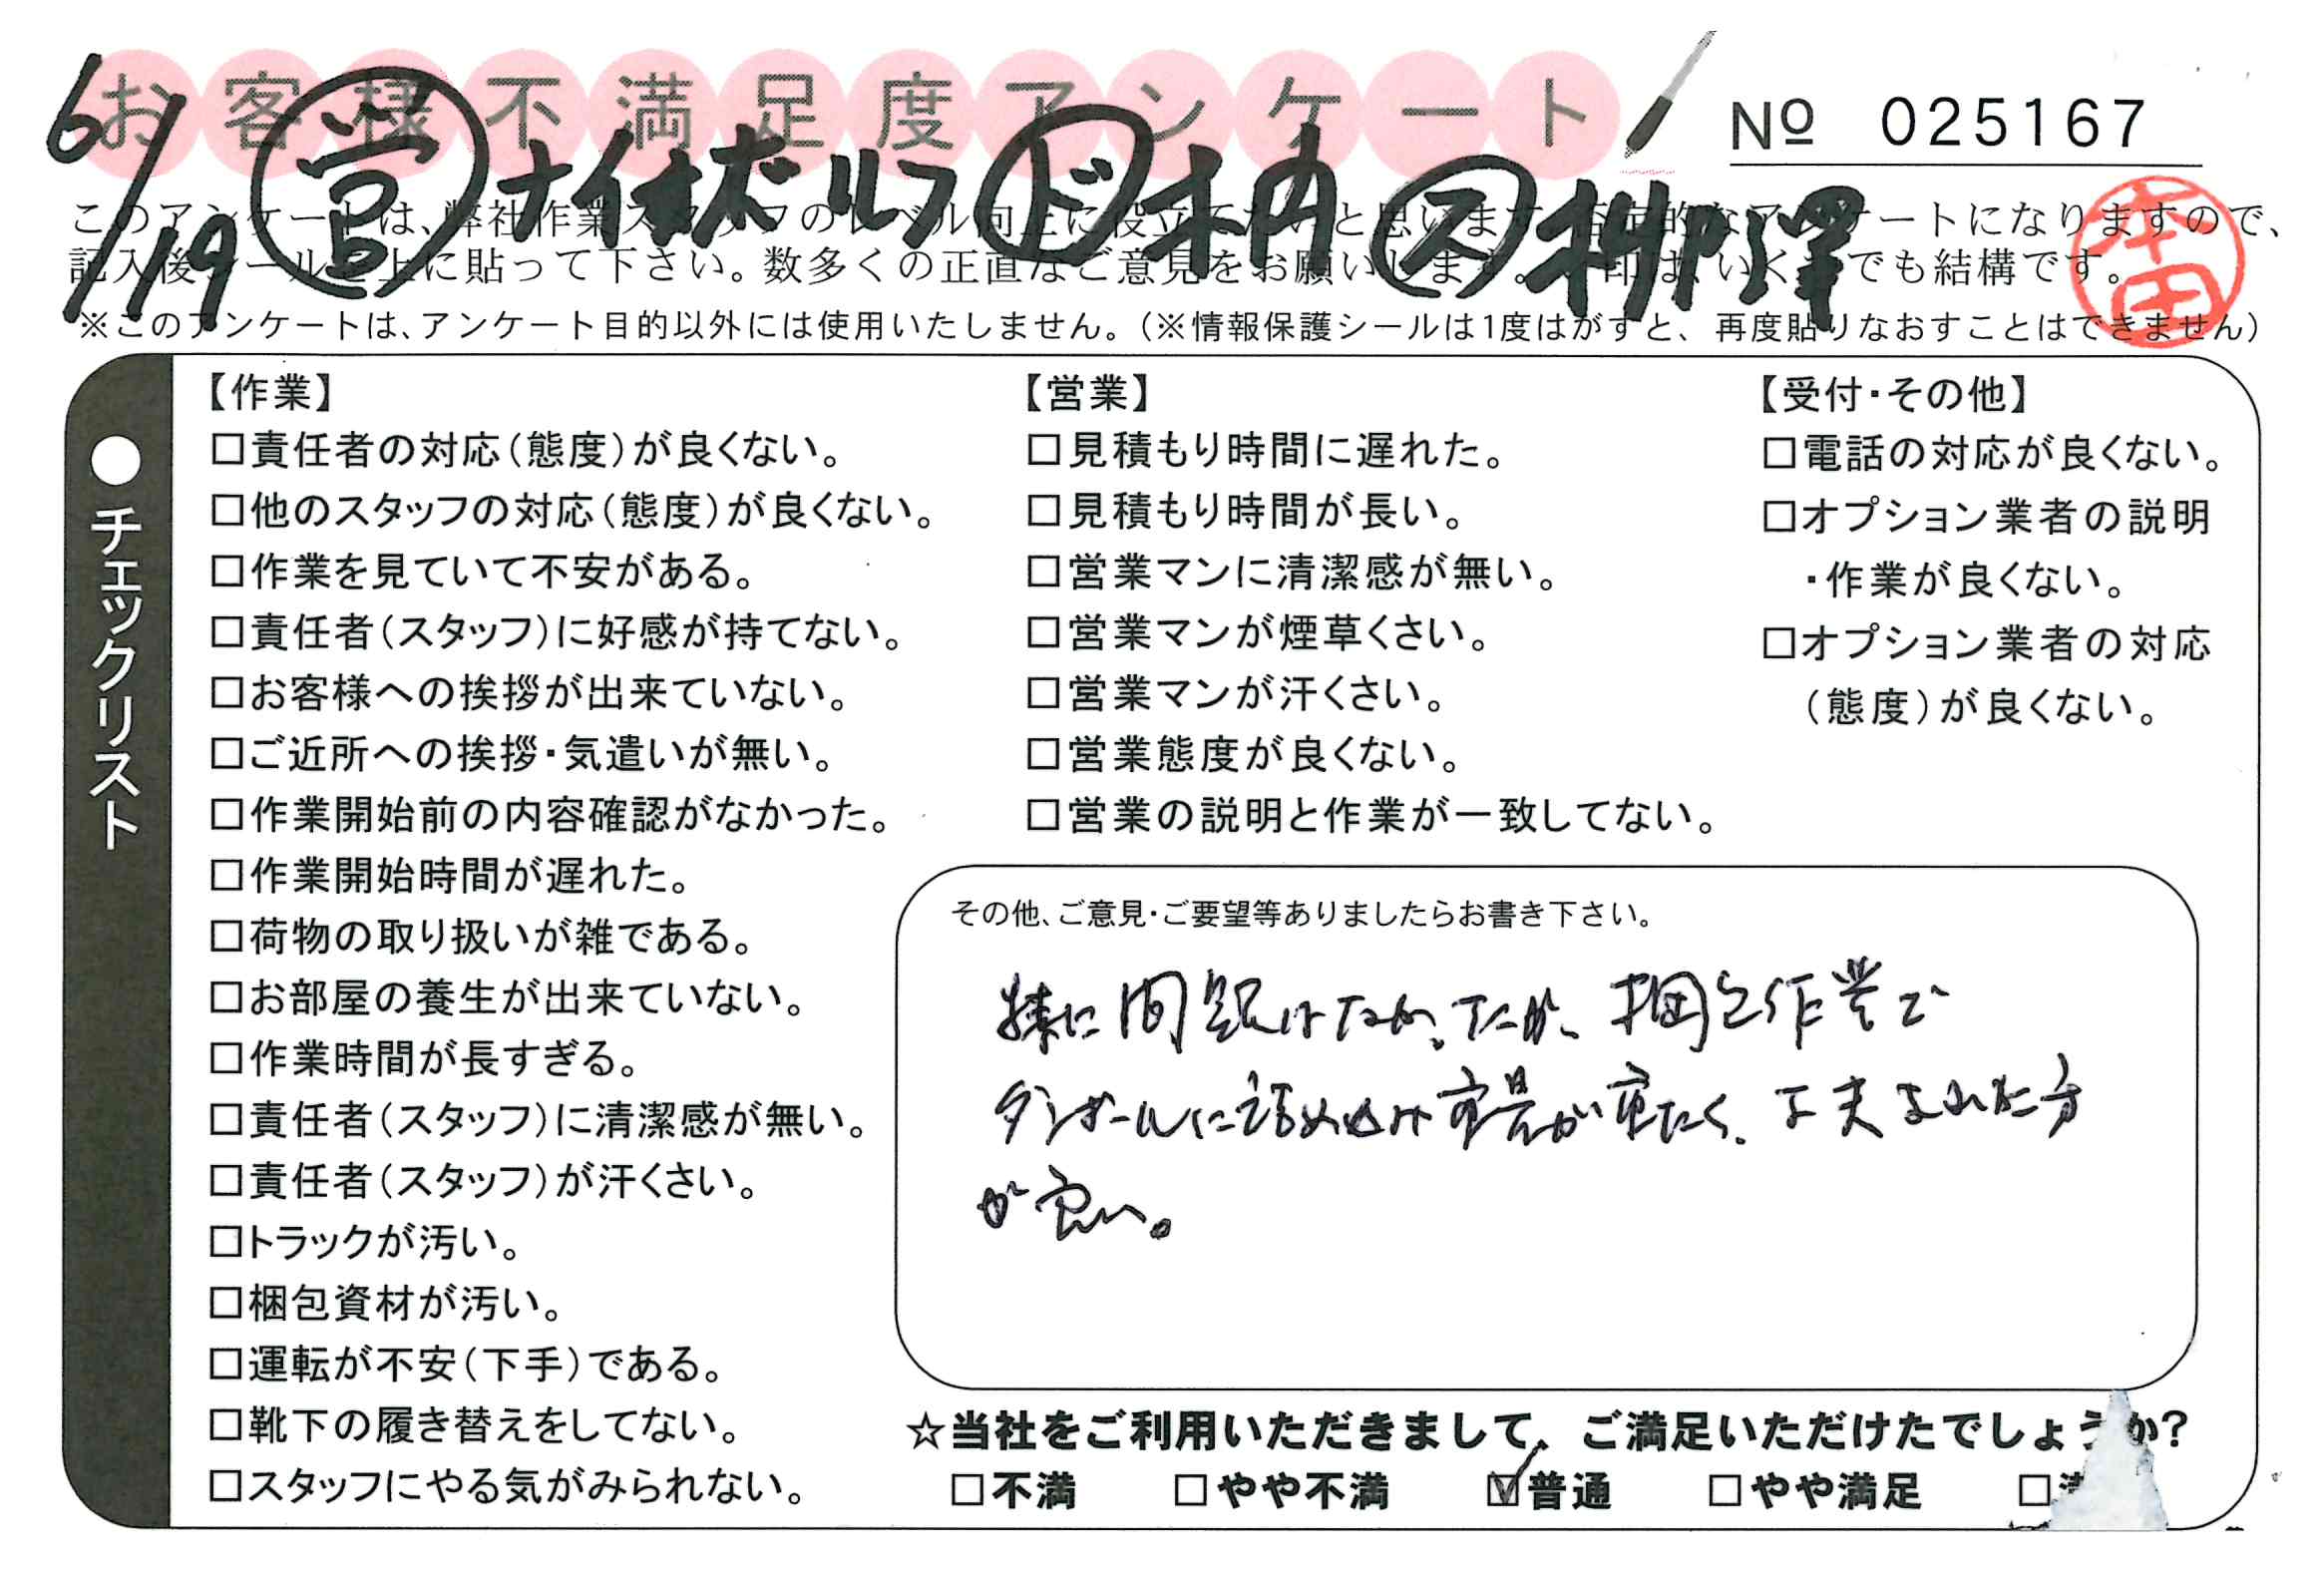 お客様不満足度アンケート
№ 025167
6/19 営 ナイボルフ ド 木内 ス 柳澤
本田
このアンケートは、弊社作業スタッフのレベル向上に役立てたいと思います。否定的なアンケートになりますので、
記入後シールを上に貼って下さい。数多くの正直なご意見をお願いします。 印は、いくつでも結構です。
※このアンケートは、アンケート目的以外には使用いたしません。（※情報保護シールは1度はがすと、再度貼りなおすことはできません）
●チェックリスト
【作業】
□責任者の対応（態度）が良くない。
□他のスタッフの対応（態度）が良くない。
□作業を見ていて不安がある。
□責任者（スタッフ）に好感が持てない。
□お客様への挨拶が出来ていない。
□ご近所への挨拶・気遣いが無い。
□作業開始前の内容確認がなかった。
□作業開始時間が遅れた。
□荷物の取り扱いが雑である。
□お部屋の養生が出来ていない。
□作業時間が長すぎる。
□責任者（スタッフ）に清潔感が無い。
□責任者（スタッフ）が汗くさい。
□トラックが汚い。
□梱包資材が汚い。
□運転が不安（下手）である。
□靴下の履き替えをしてない。
□スタッフにやる気がみられない。
【営業】
□見積もり時間に遅れた。
□見積もり時間が長い。
□営業マンに清潔感が無い。
□営業マンが煙草くさい。
□営業マンが汗くさい。
□営業態度が良くない。
□営業の説明と作業が一致してない。
【受付・その他】
□電話の対応が良くない。
□オプション業者の説明
・作業が良くない。
□オプション業者の対応
（態度）が良くない。
その他、ご意見・ご要望等ありましたらお書き下さい。
特に問題はなかったが、梱包作業で
ダンボールに詰め込み重量が重たく、工夫された方
が良い。
☆当社をご利用いただきまして、ご満足いただけたでしょうか？
□不満 □やや不満 ☑普通 □やや満足 □満